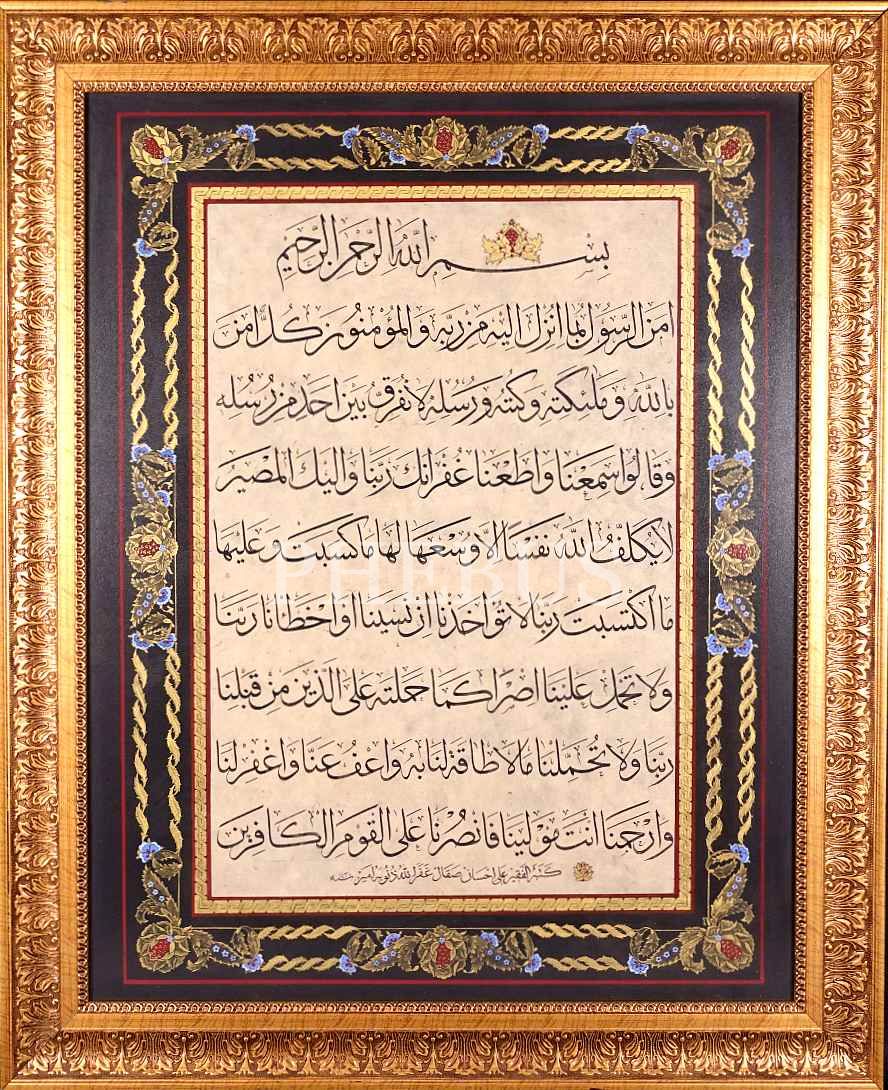 بِسْمِ اللّٰهِ الرَّحْمٰنِ الرَّحِيمِ
اٰمن الرَّسُولُ بمٰا انْزل اليْه مِنْ ربّه والمؤْمنُون كلٌّ اٰمن
بالله وملٰئكته وكتبه ورُسُله لا نُفرّقُ بيْن احدٍ منْ رُسُله
وقالُوا سمعْنا واطعْنا غُفْرانك ربّنا واليْك المصيرُ
لا يُكلّفُ اللهُ نفْسًا الّا وُسْعها لها ما كسبتْ وعليْها
ما اكتسبتْ ربّنا لا تؤاخذْنا انْ نسينا اوْ اخْطأْنا ربّنا
ولا تحْملْ عليْنا اصْرًا كما حملْته على الّذين منْ قبْلنا
ربّنا ولا تُحمّلْنا ما لا طاقة لنا به واعْفُ عنّا واغْفرْ لنا
وارْحمْنا انْت موْلينا فانْصُرْنا على القوْم الكافرين
كتبه الفقير على احسان صقال غفر الله ذنوبه امين
PHEBUS